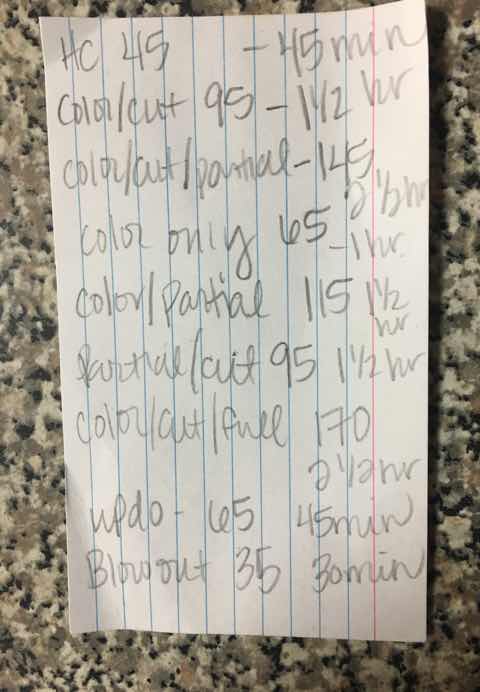 HC 45 - 45min
Color/cut 95 - 1 1/2 hr
color/cut/partial - 145
2 1/2 hr
color only 65
- 1 hr
color/Partial 115 1 1/2
hr
Partial/cut 95 1 1/2 hr
color/cut/full 170
2 1/2 hr
updo - 65 45min
Blowout 35 30min